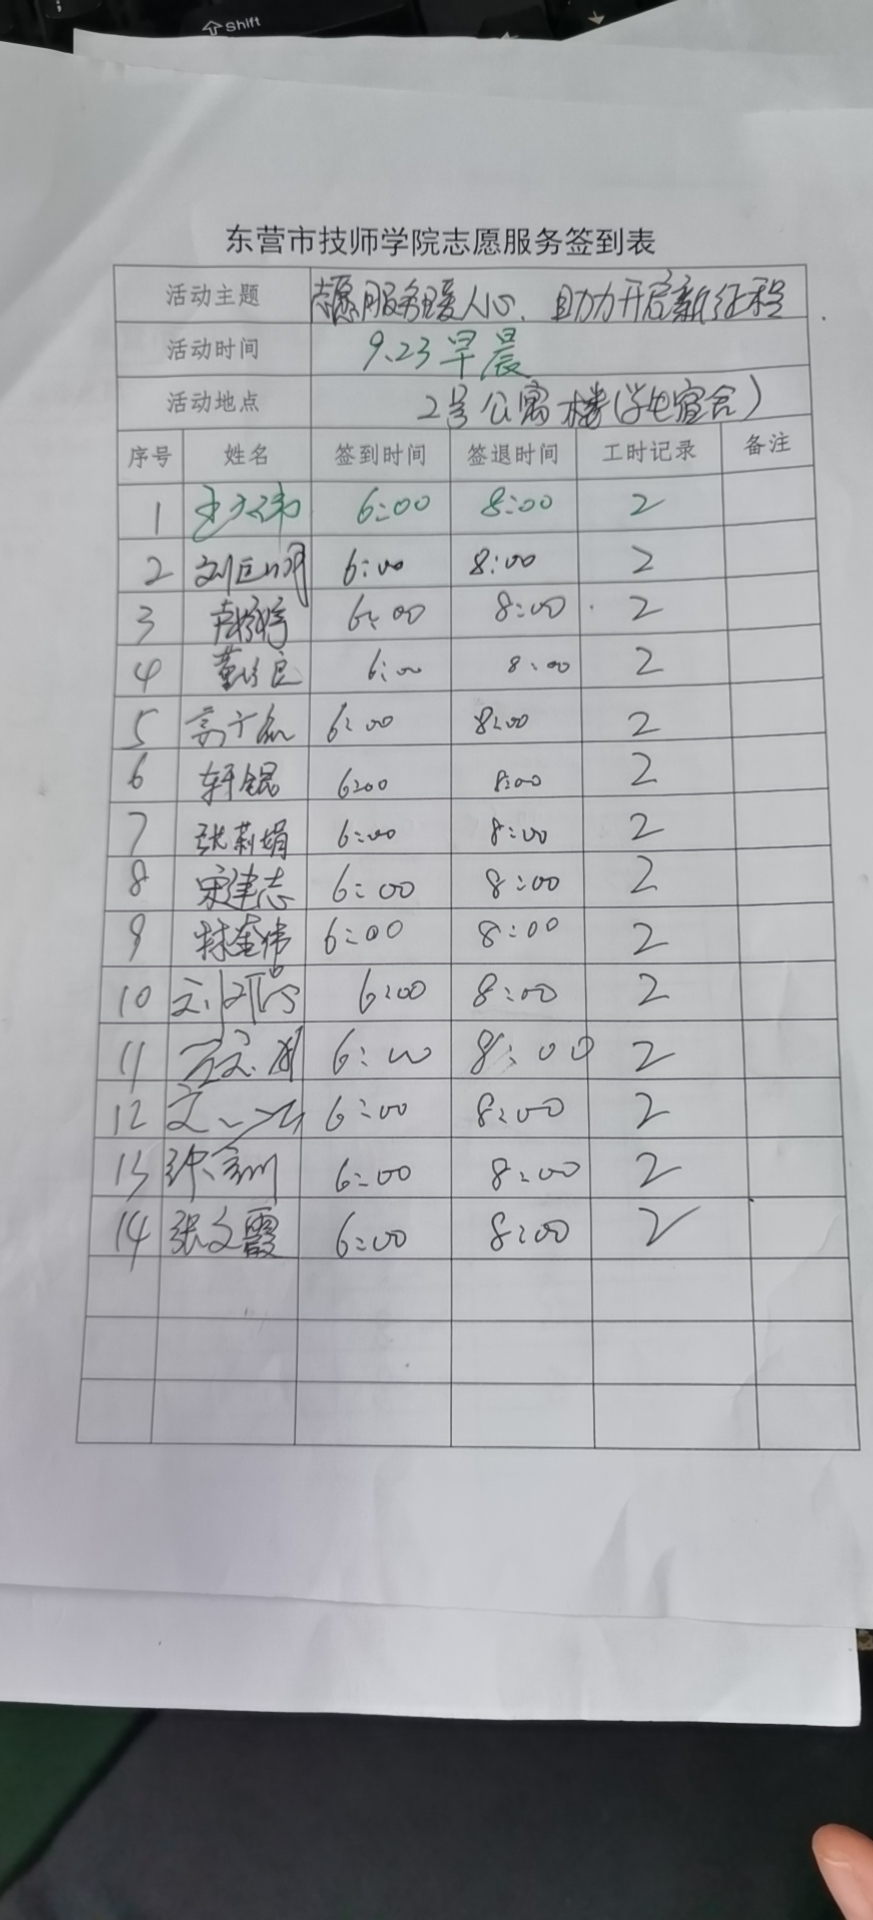 shift
东营市技师学院志愿服务签到表
活动主题 志愿服务暖人心、助力开启新征程
活动时间 9.23 早晨
活动地点 2号公寓楼(学生宿舍)
序号 姓名 签到时间 签退时间 工时记录 备注
1 6:00 8:00 2
2 刘 6:00 8:00 2
3 6:00 8:00 2
4 董 6:00 8:00 2
5 6:00 8:00 2
6 轩锟 6:00 8:00 2
7 张莉娟 6:00 8:00 2
8 宋建志 6:00 8:00 2
9 林奎伟 6:00 8:00 2
10 刘 6:00 8:00 2
11 6:00 8:00 2
12 6:00 8:00 2
13 6:00 8:00 2
14 张文霞 6:00 8:00 2